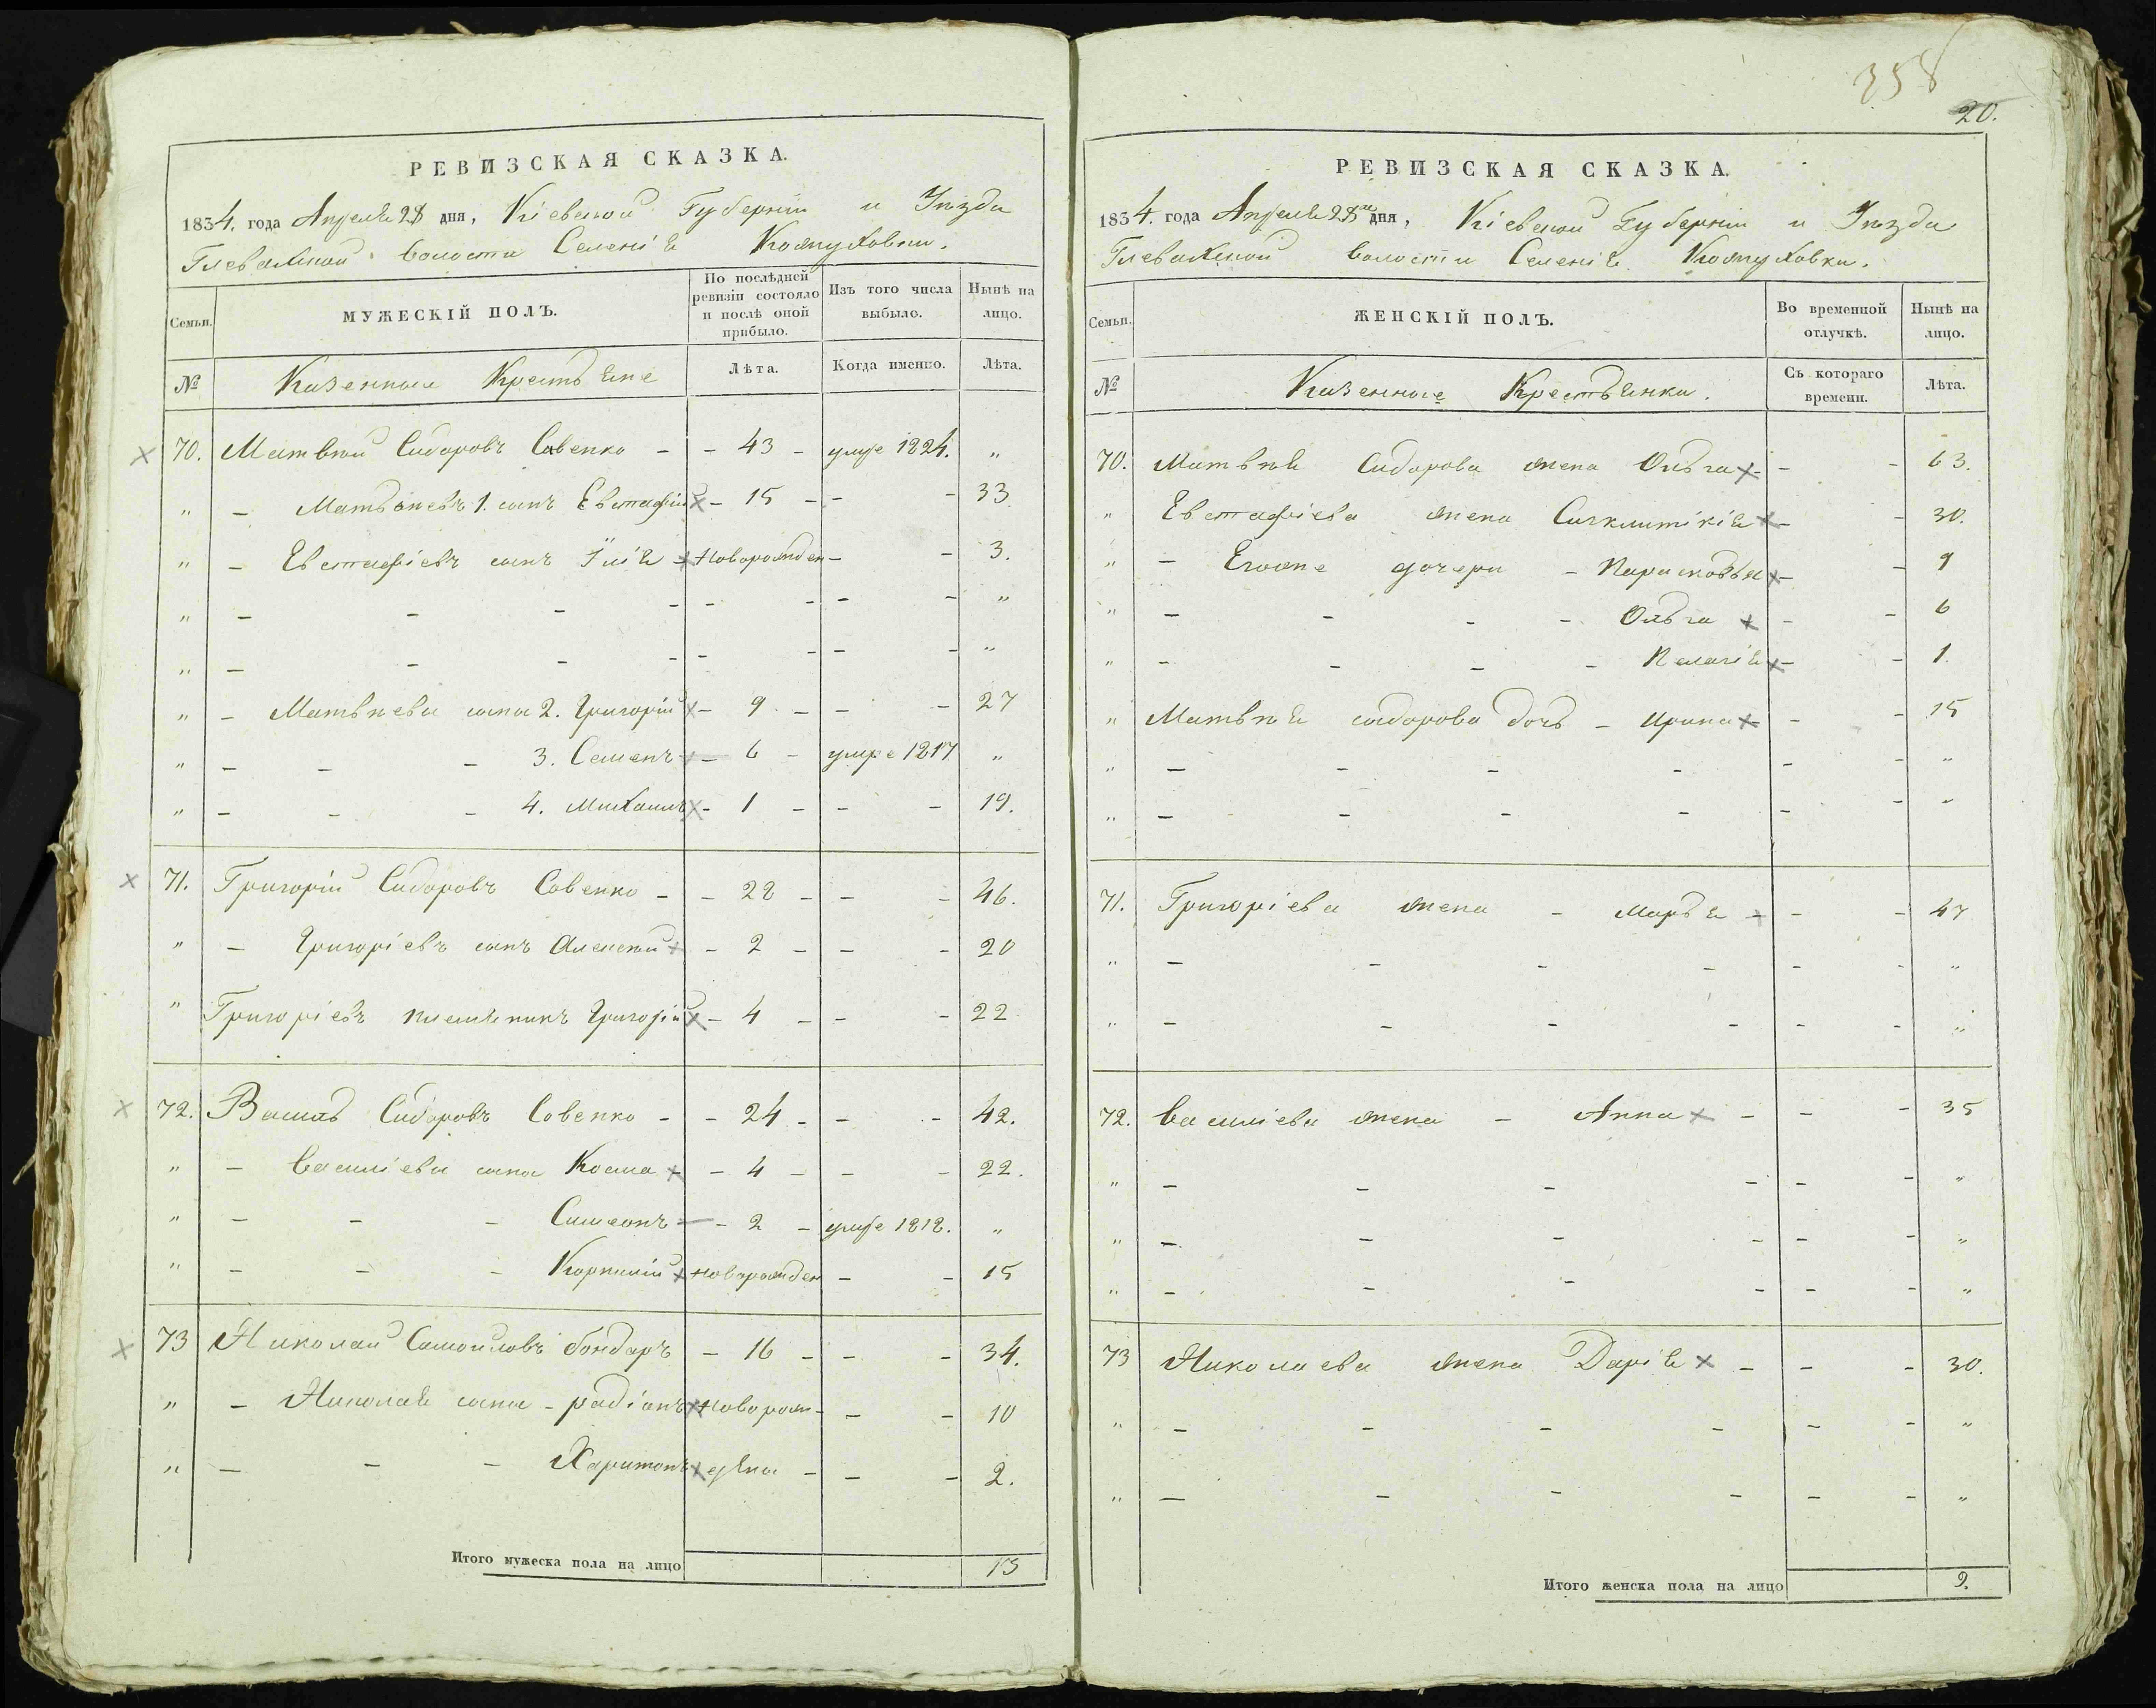 РЕВИЗСКАЯ СКАЗКА.
1834. года Апреля 28 дня, Кіевской Губерніи и Уѣзда
Глевахской волости Селенія Кожуховки.
Семьи. МУЖЕСКІЙ ПОЛЪ. По послѣдней ревизіи состояло и послѣ оной прибыло. Изъ того числа выбыло. Нынѣ на лицо.
№ Казенные Крестьяне Лѣта. Когда именно. Лѣта.
70. Матвѣй Сидоровъ Савенко - - 43 - умре 1824. „
„ - Матвѣевъ 1. сынъ Евстафій - 15 - - - 33
„ - Евстафіевъ сынъ Илія Новорожден - - 3.
„ - - - - - - - - „
„ - - - - - - - - „
„ - Матвѣева сына 2. Григорій - 9 - - - 27
„ - - - 3. Семенъ - 6 - умре 1817 „
„ - - - 4. Михаилъ - 1 - - - 19.
71. Григорій Сидоровъ Савенко - - 28 - - - 46.
„ - Григоріевъ сынъ Алексей - 2 - - - 20
„ Григоріевъ племяникъ Григорій - 4 - - - 22
72. Василь Сидоровъ Совенко - - 24 - - - 42.
„ - Василіева сына Косма - 4 - - - 22.
„ - - - Симеонъ - 2 - умре 1818. „
„ - - - Корнилій новорожден - - 15
73 Николай Самойловъ бондаръ - 16 - - - 34.
„ - Николая сына - радіонъ Новорож- - - 10
„ - - - Харитонъ дена - - - 2.
Итого мужеска пола на лицо 13
358
20.
РЕВИЗСКАЯ СКАЗКА.
1834. года Апреля 28го дня, Кіевской Губерніи и Уѣзда
Глевахской волости Селенія Кожуховки.
Семьи. ЖЕНСКІЙ ПОЛЪ. Во временной отлучкѣ. Нынѣ на лицо.
№ Казенные Крестьянки. Съ котораго времени. Лѣта.
70. Матвѣя Сидорова жена Ольга - - - 63.
„ Евстафіева жена Сигклитікія - - 30.
„ - Егоже дочери - Парасковья - - 9
„ - - - - Ольга - - 6
„ - - - - Пелагія - - 1.
„ Матвѣя сидорова дочь - Ирина - - 15
„ - - - - - - „
„ - - - - - - „
71. Григоріева жена - Марья - - 47
„ - - - - - - „
„ - - - - - - „
72. Василіева жена - Анна - - - 35
„ - - - - - - „
„ - - - - - - „
„ - - - - - - „
73 Николаева жена Дарія - - - 30.
„ - - - - - - „
„ - - - - - - „
Итого женска пола на лицо 9.